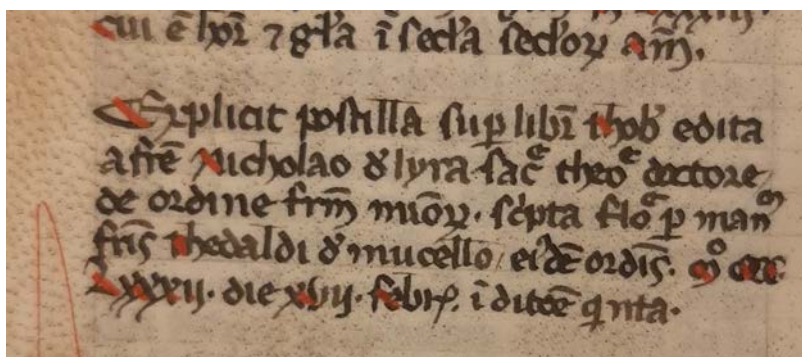 cui ē hoꝛ ⁊ gl'a ī secl'a secl'oꝝ am̄.
Explicit postilla sup̲ libꝝ thob' edita
a fr̄e Nicholao d' lyra sac̄ᵉ theoᵉ doctore
de ordine fr̄m mīoꝝ. sc'pta floᵉ ꝑ manꝰ
fr̄is thedaldi d' mucello, eīdē ordīs. mº ccc
Lxxxij. die xvij. febrꝭ. īditōe q̄nta.